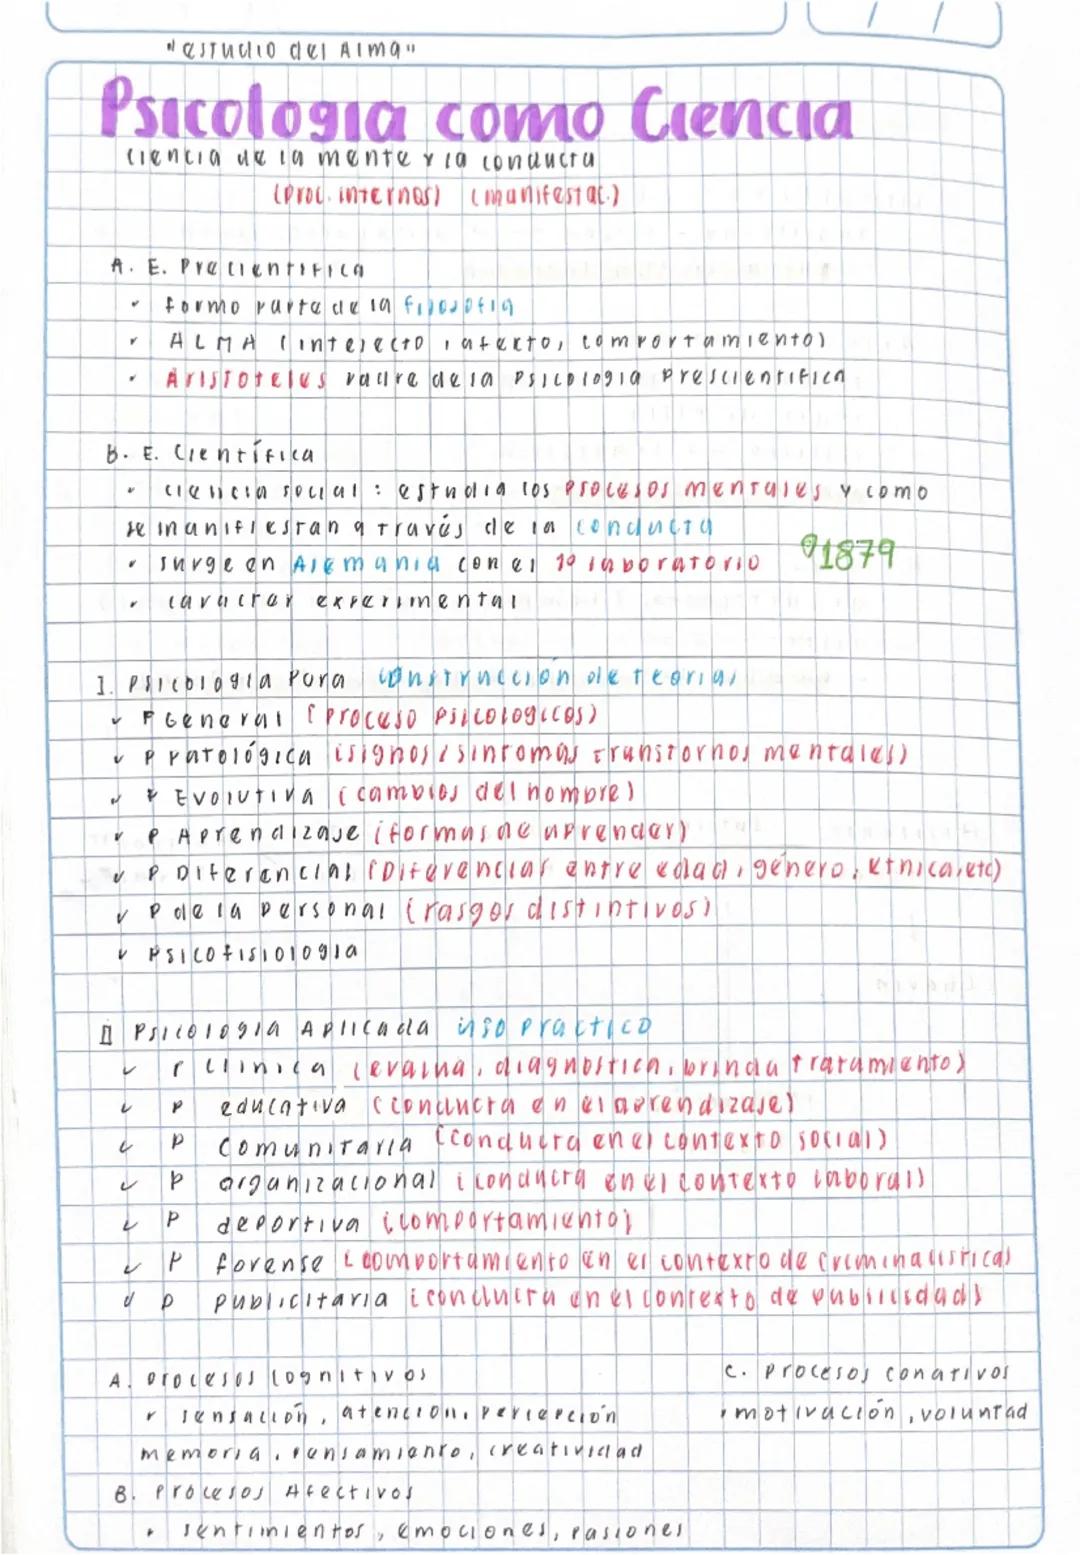 "estudio del Alma"
Psicología como Ciencia
ciencia de la mente y la conducta
(proc. internos) (manifestac.)
A. E. Precientifica
• formo parte de la filosofia
• ALMA (intelecto, afecto, comportamiento)
• Aristoteles padre de la psicologia Prescientifica
B. E. Científica
• ciencia social : estudia los procesos mentales y como
se manifiestan a través de la conducta
• surge en Alemania con el 1º laboratorio 1879
• caracter experimental
I. Psicologia Pura construcción de teorias
✓ P General (proceso psicologicos)
✓ P Patológica (signos/sintomas transtornos mentales)
✓ P Evolutiva (cambios del hombre)
✓ P Aprendizaje (formas de aprender)
✓ P Diferencial (Diferencias entre edad, género, etnica, etc)
✓ P de la personal (rasgos distintivos)
✓ Psicofisiologia
II Psicologia Aplicada uso practico
✓ P Clinica (evalua, diagnostica, brinda tratamiento)
✓ P educativa (conducta en el aprendizaje)
✓ P Comunitaria (conducta en el contexto social)
✓ P organizacional (conducta en el contexto laboral)
✓ P deportiva (comportamiento)
✓ P forense (comportamiento en el contexto de criminalisticas
✓ P publicitaria (conducta en el contexto de publicidad)
A. Procesos Cognitivos
• sensación, atencion, percepción
memoria, pensamiento, creatividad
B. Procesos Afectivos
• sentimientos, emociones, pasiones
C. Procesos conativos
• motivación, voluntad